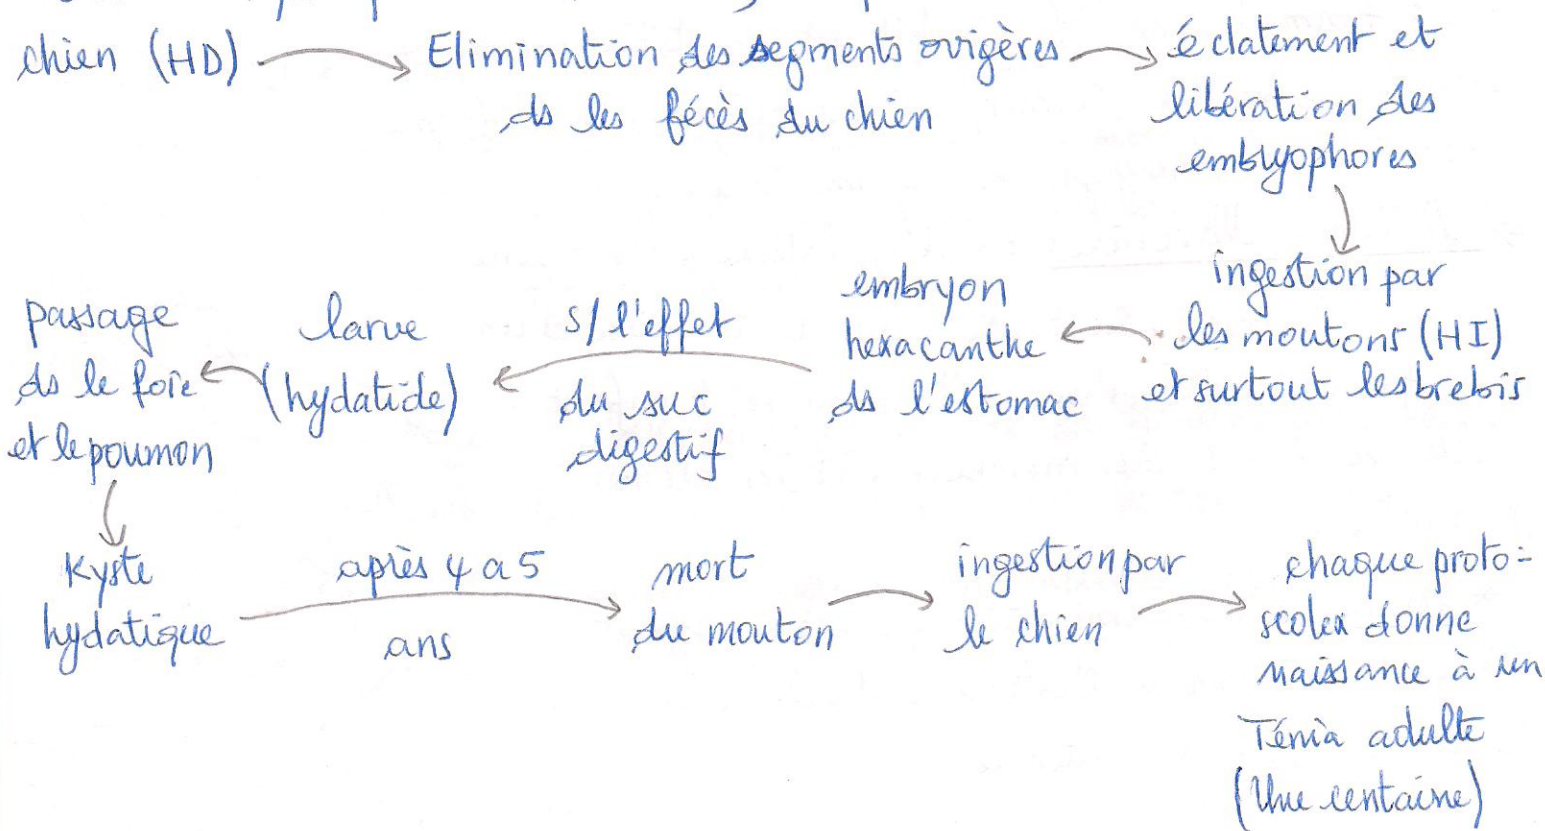 chien (HD)
Elimination des segments ovigères
ds les fécès du chien
éclatement et
libération des
embryophores
ingestion par
les moutons (HI)
et surtout les brebis
embryon
hexacanthe
ds l'estomac
s/ l'effet
du suc
digestif
larve
(hydatide)
passage
ds le foie
et le poumon
Kyste
hydatique
après 4 a 5
ans
mort
du mouton
ingestion par
le chien
chaque proto-
scolex donne
naissance à un
Ténia adulte
(Une centaine)